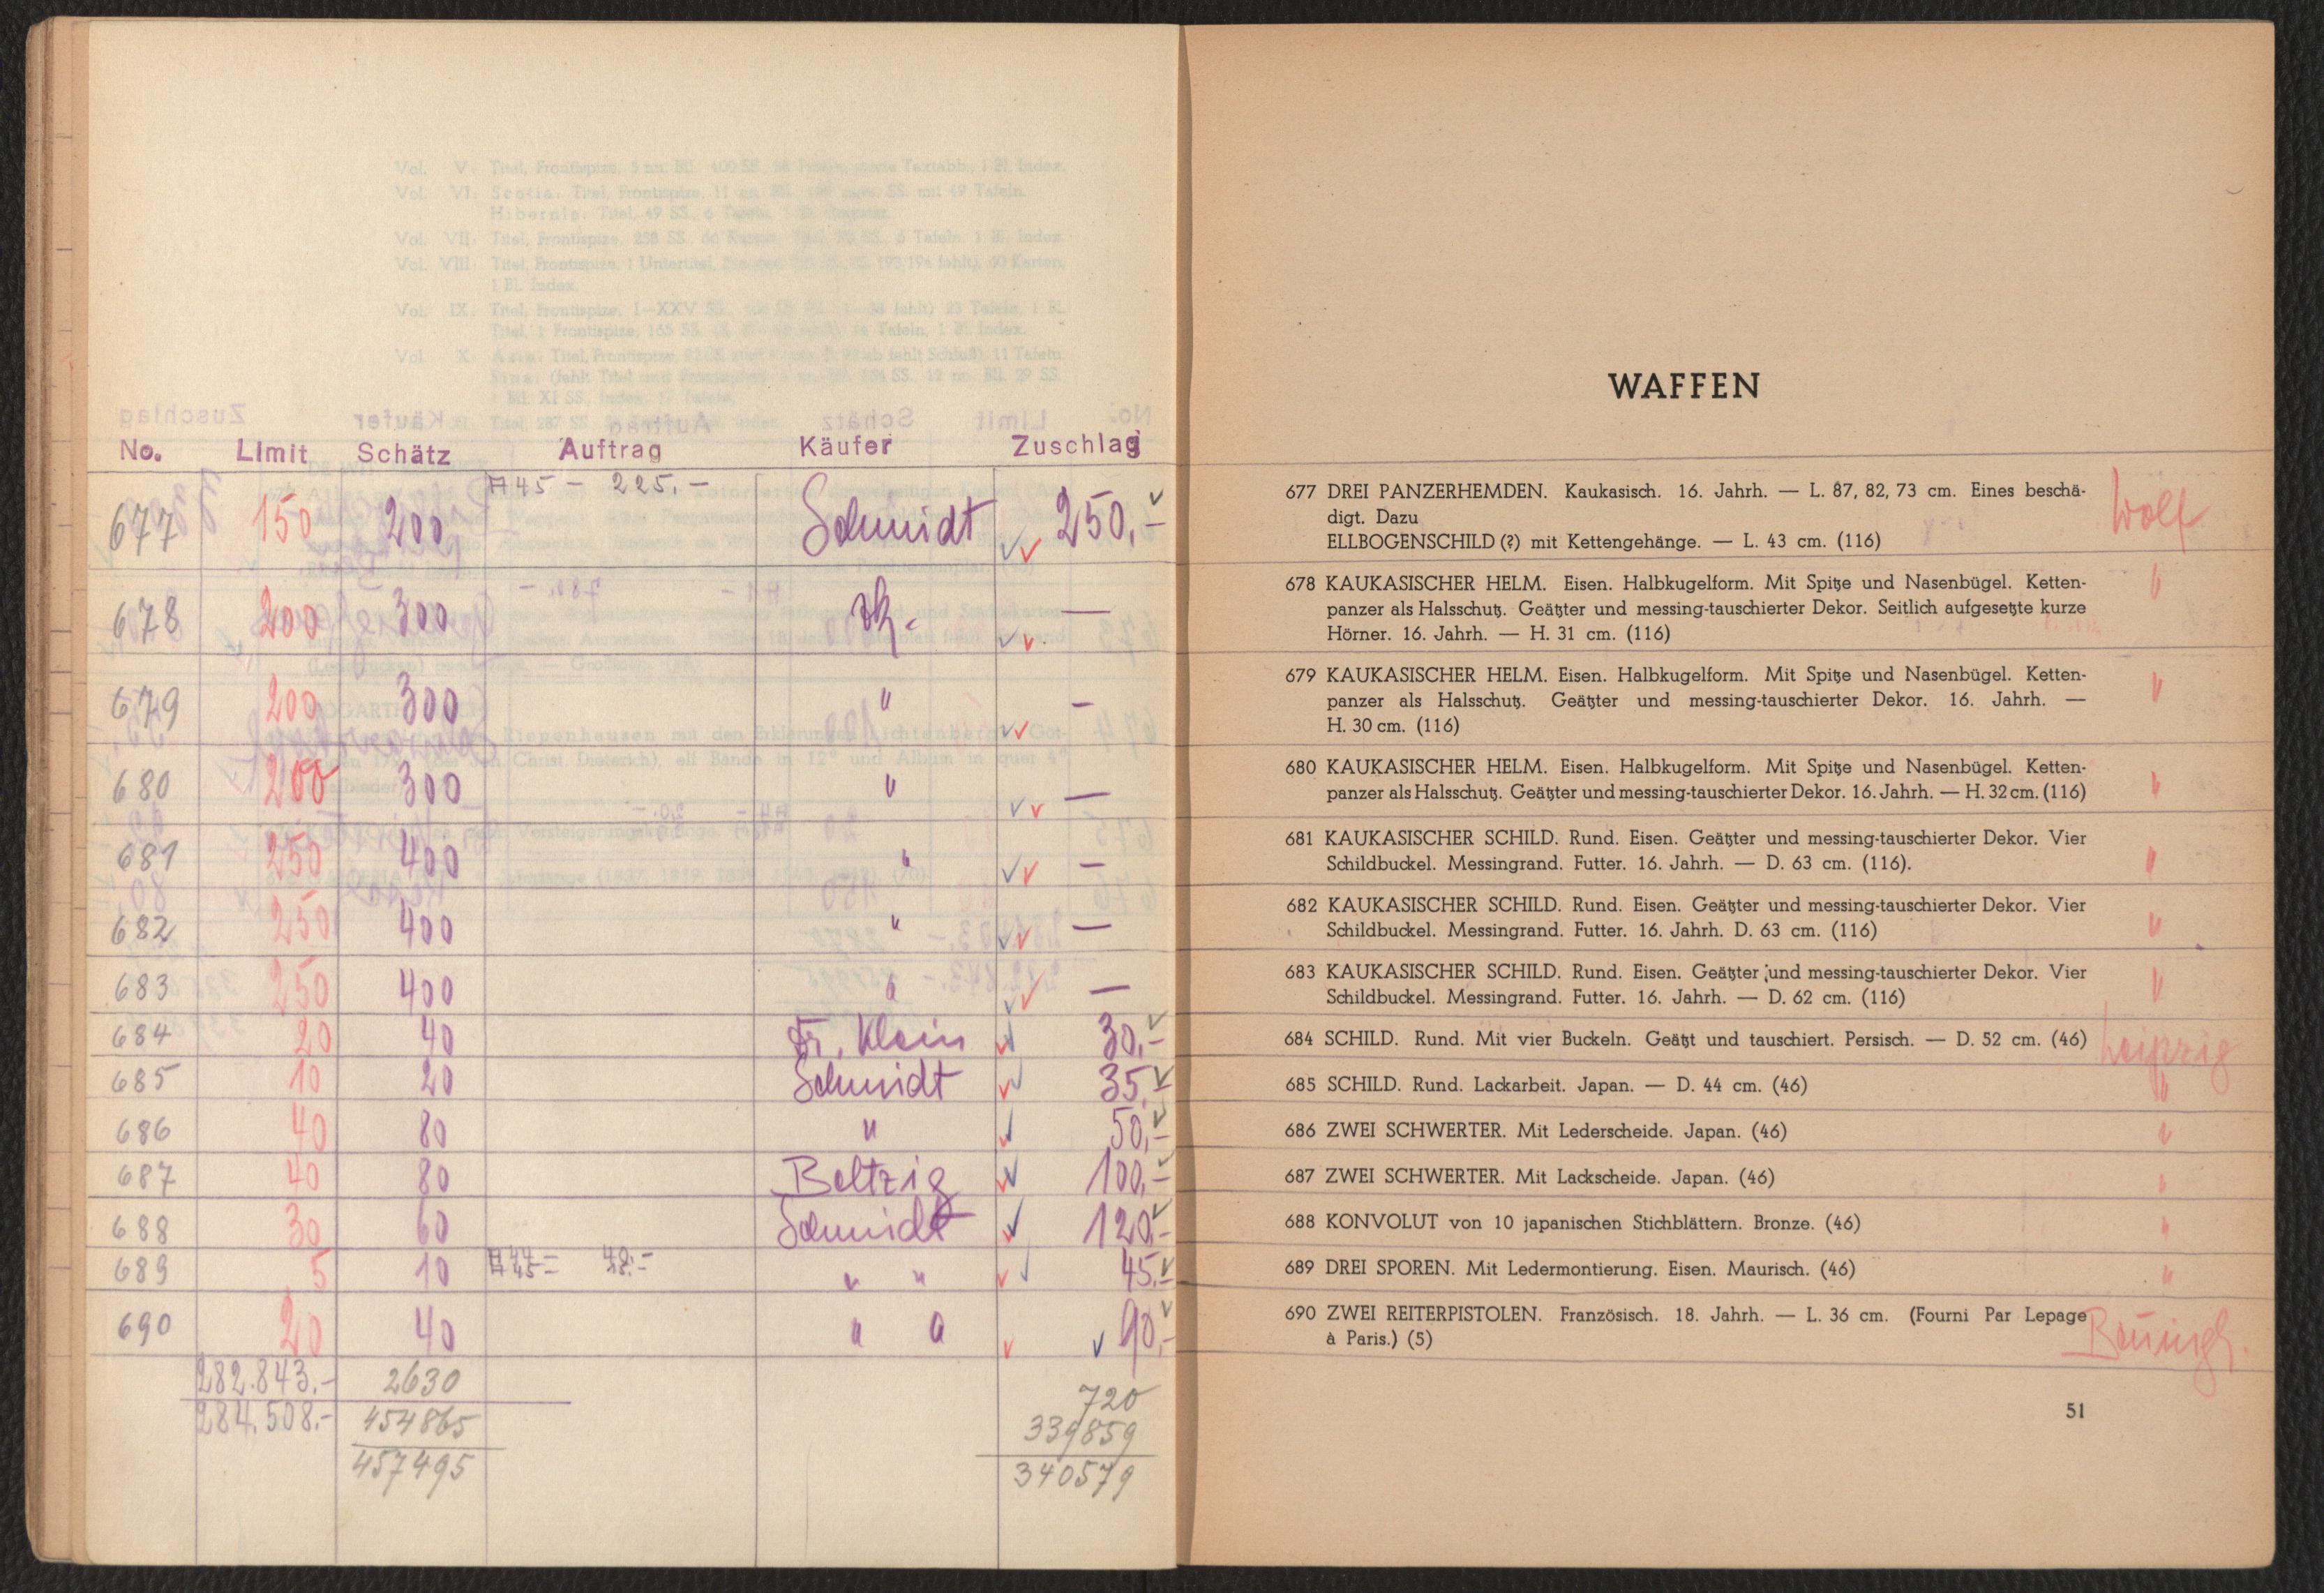 No. Limit Schätz Auftrag Käufer Zuschlag
677 150 200 A 45 – 225.– Schmidt 250,–
678 200 300 zk. —
679 200 300 " —
680 200 300 " —
681 250 400 " —
682 250 400 " —
683 250 400 " —
684 20 40 Fr. Klein 30,–
685 10 20 Schmidt 35,–
686 40 80 " 50,–
687 40 80 Beltzig 100,–
688 30 60 Schmidt 120,–
689 5 10 " " 45,–
690 20 40 " " 90,–
282.843.– 2630 720
284.508.– 454865 339859
457495 340579
WAFFEN
677 DREI PANZERHEMDEN. Kaukasisch. 16. Jahrh. — L. 87, 82, 73 cm. Eines beschä- Wolf
digt. Dazu
ELLBOGENSCHILD (?) mit Kettengehänge. — L. 43 cm. (116)
678 KAUKASISCHER HELM. Eisen. Halbkugelform. Mit Spitze und Nasenbügel. Ketten- "
panzer als Halsschutz. Geätzter und messing-tauschierter Dekor. Seitlich aufgesetzte kurze
Hörner. 16. Jahrh. — H. 31 cm. (116)
679 KAUKASISCHER HELM. Eisen. Halbkugelform. Mit Spitze und Nasenbügel. Ketten- "
panzer als Halsschutz. Geätzter und messing-tauschierter Dekor. 16. Jahrh. —
H. 30 cm. (116)
680 KAUKASISCHER HELM. Eisen. Halbkugelform. Mit Spitze und Nasenbügel. Ketten- "
panzer als Halsschutz. Geätzter und messing-tauschierter Dekor. 16. Jahrh. — H. 32 cm. (116)
681 KAUKASISCHER SCHILD. Rund. Eisen. Geätzter und messing-tauschierter Dekor. Vier "
Schildbuckel. Messingrand. Futter. 16. Jahrh. — D. 63 cm. (116).
682 KAUKASISCHER SCHILD. Rund. Eisen. Geätzter und messing-tauschierter Dekor. Vier "
Schildbuckel. Messingrand. Futter. 16. Jahrh. D. 63 cm. (116)
683 KAUKASISCHER SCHILD. Rund. Eisen. Geätzter und messing-tauschierter Dekor. Vier "
Schildbuckel. Messingrand. Futter. 16. Jahrh. — D. 62 cm. (116)
684 SCHILD. Rund. Mit vier Buckeln. Geätzt und tauschiert. Persisch. — D. 52 cm. (46) Leipzig
685 SCHILD. Rund. Lackarbeit. Japan. — D. 44 cm. (46) "
686 ZWEI SCHWERTER. Mit Lederscheide. Japan. (46) "
687 ZWEI SCHWERTER. Mit Lackscheide. Japan. (46) "
688 KONVOLUT von 10 japanischen Stichblättern. Bronze. (46) "
689 DREI SPOREN. Mit Ledermontierung. Eisen. Maurisch. (46) "
690 ZWEI REITERPISTOLEN. Französisch. 18. Jahrh. — L. 36 cm. (Fourni Par Lepage
à Paris.) (5)
51